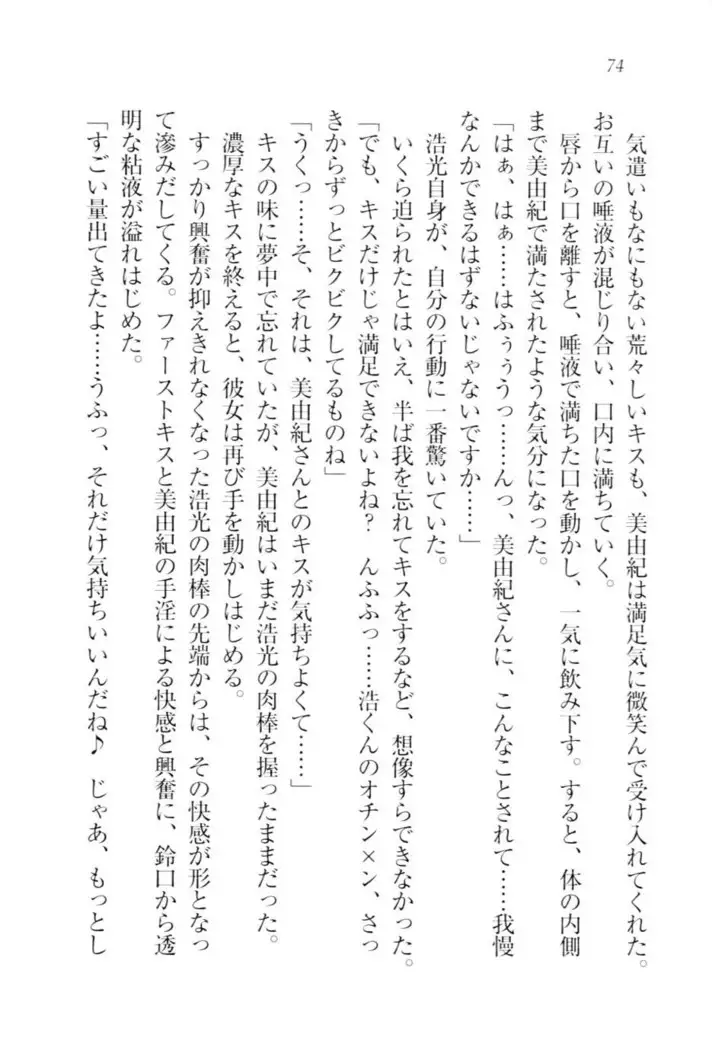 74
気遣いもなにもない荒々しいキスも、美由紀は満足気に微笑んで受け入れてくれた。
お互いの唾液が混じり合い、口内に満ちていく。
唇から口を離すと、唾液で満ちた口を動かし、一気に飲み下す。すると、体の内側
まで美由紀で満たされたような気分になった。
「はぁ、はぁ……はふぅぅうっ……んっ、美由紀さんに、こんなことされて……我慢
なんかできるはずないじゃないですか……」
浩光自身が、自分の行動に一番驚いていた。
いくら迫られたとはいえ、半ば我を忘れてキスをするなど、想像すらできなかった。
「でも、キスだけじゃ満足できないよね？　んふふっ……浩くんのオチン×ン、さっ
きからずっとビクビクしてるものね」
「うくっ……そ、それは、美由紀さんとのキスが気持ちよくて……」
キスの味に夢中で忘れていたが、美由紀はいまだ浩光の肉棒を握ったままだった。
濃厚なキスを終えると、彼女は再び手を動かしはじめる。
すっかり興奮が抑えきれなくなった浩光の肉棒の先端からは、その快感が形となっ
て滲みだしてくる。ファーストキスと美由紀の手淫による快感と興奮に、鈴口から透
明な粘液が溢れはじめた。
「すごい量出てきたよ……うふっ、それだけ気持ちいいんだね♪　じゃあ、もっとし